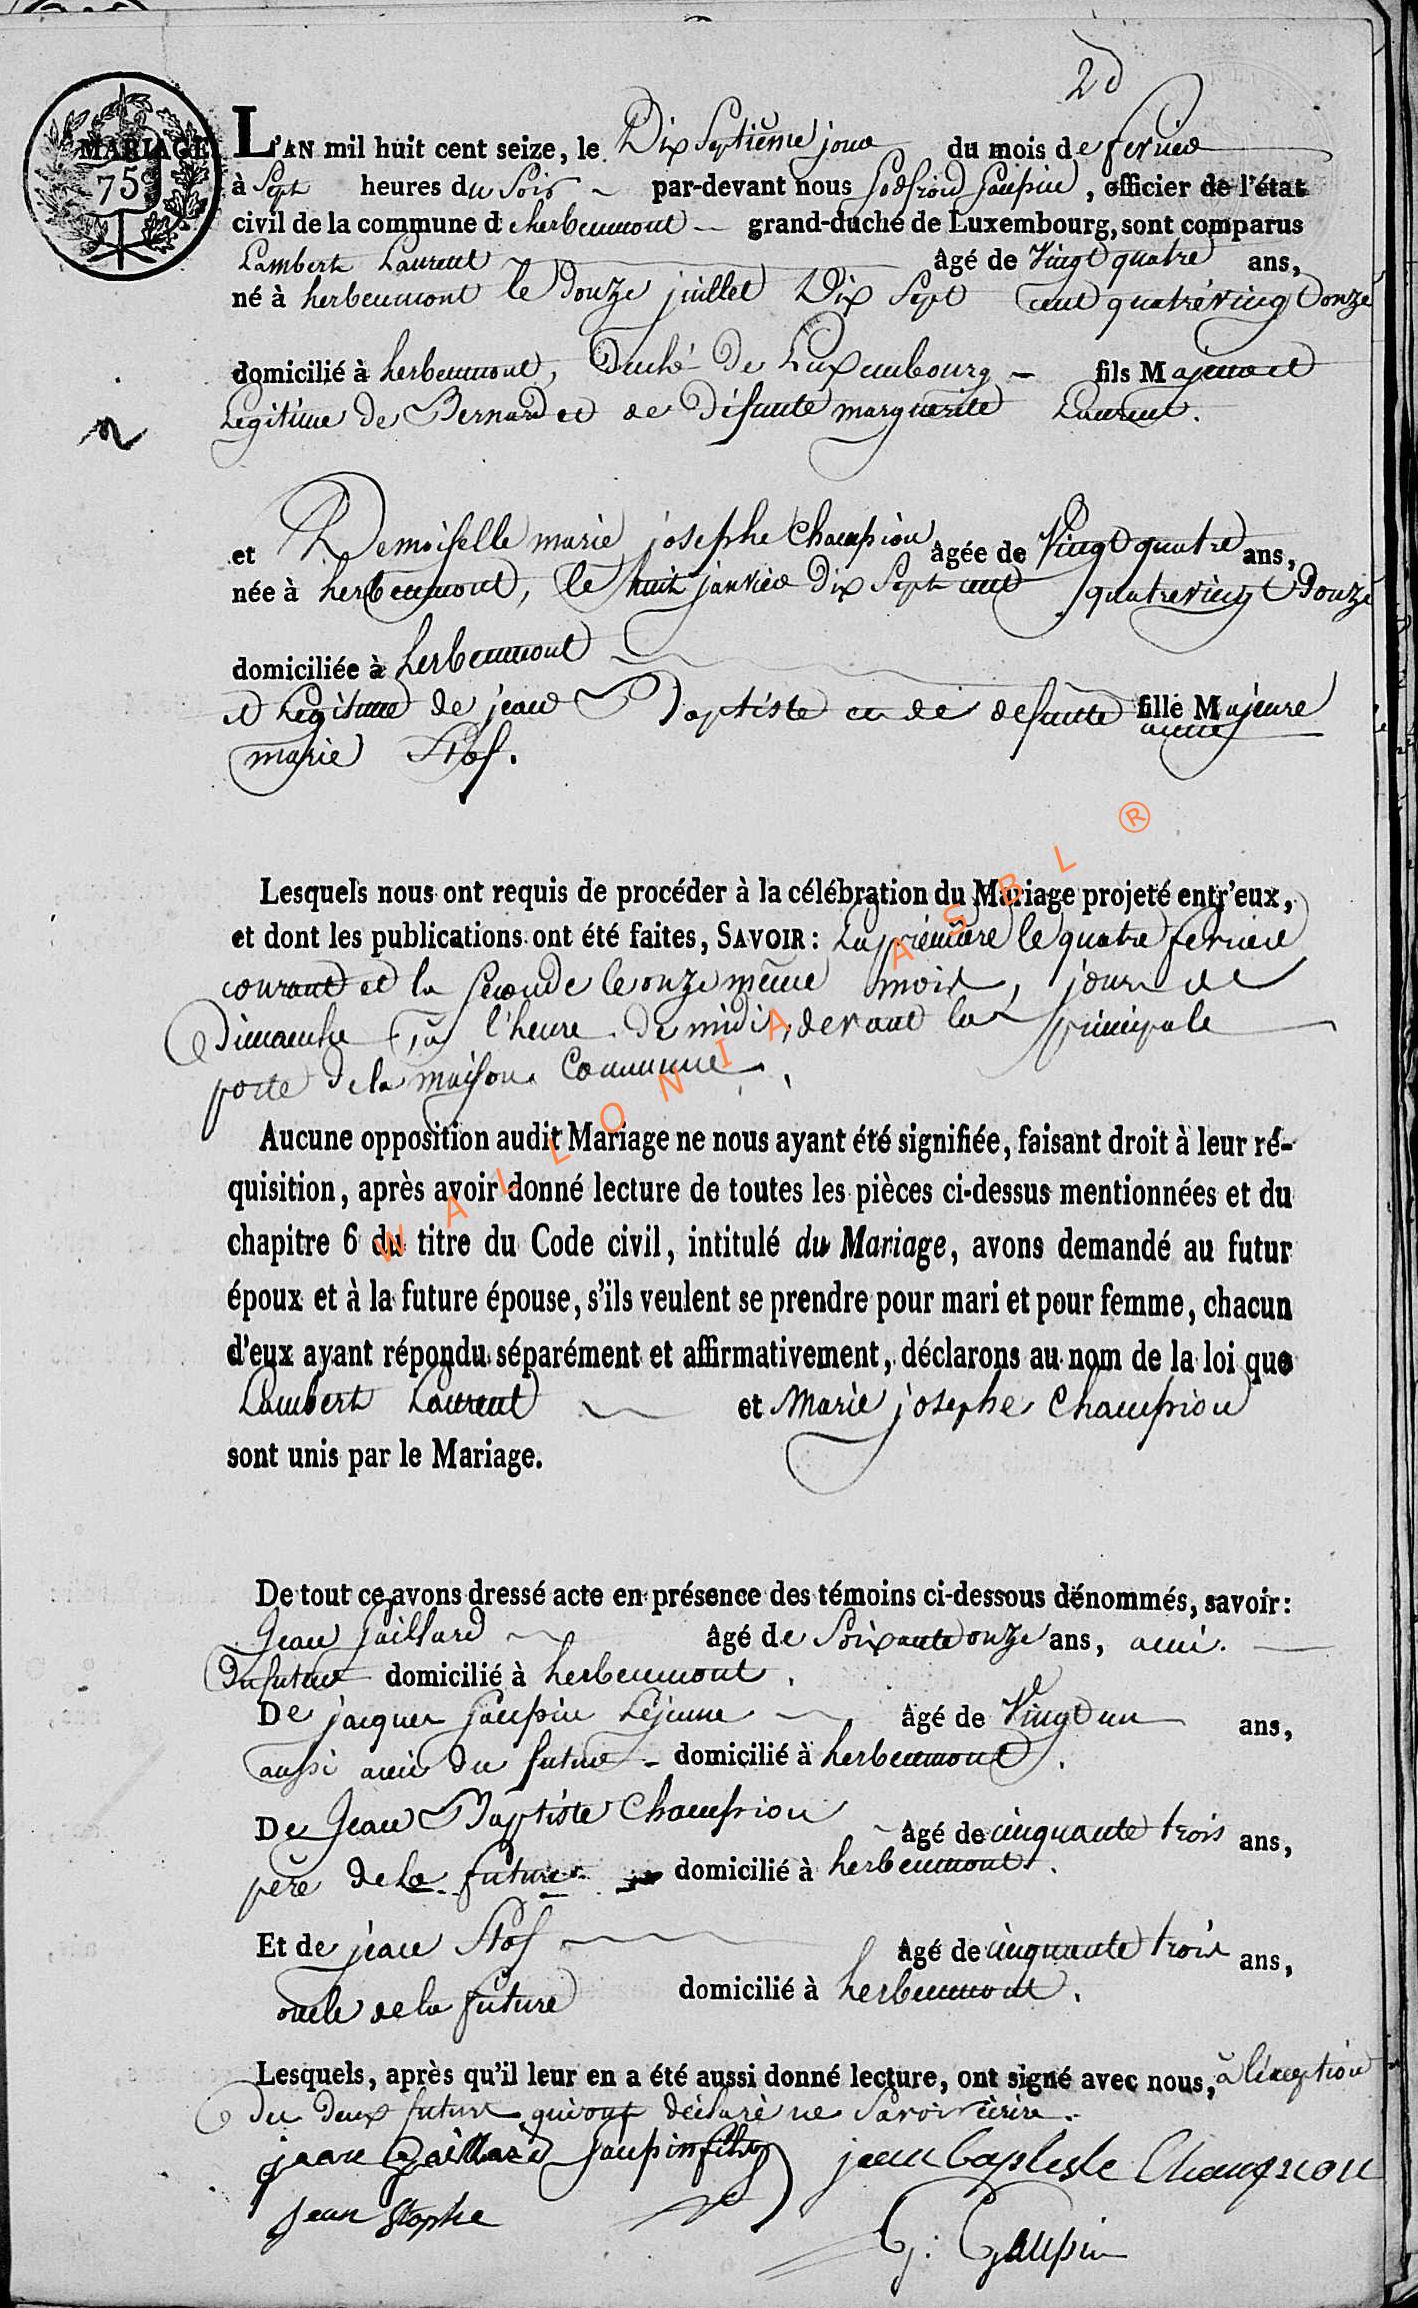 2d
MARIAGE
75c
L'AN mil huit cent seize, le Dix Septième jour du mois de fevrier
à Sept heures du Soir par-devant nous Godfroid Gaupin, officier de l'état
civil de la commune d'herbeumont grand-duché de Luxembourg, sont comparus
Lambert Laurent âgé de Vingt quatre ans,
né à herbeumont le Douze juillet Dix Sept cent quatrevingt Donze
domicilié à herbeumont, Duché de Luxembourg fils Majeur et
Legitime de Bernard et de défunte marguerite Laurent.
2
et Demoiselle marie josephe Champion âgée de Vingt quatre ans,
née à herbeumont, le huit janvier Dix Sept cent quatrevingt Douze
domiciliée à herbeumont
et Legitime de jean Baptiste et de defunte fille Majeure
anne
marie Stof.
Lesquels nous ont requis de procéder à la célébration du Mariage projeté entr'eux,
et dont les publications ont été faites, SAVOIR: La première le quatre fevrier
courant et la Seconde le onze même mois, jour de
Dimanche, à l'heure de midi, devant la principale
porte de la maison Commune.
Aucune opposition audit Mariage ne nous ayant été signifiée, faisant droit à leur ré-
quisition, après avoir donné lecture de toutes les pièces ci-dessus mentionnées et du
chapitre 6 du titre du Code civil, intitulé du Mariage, avons demandé au futur
époux et à la future épouse, s'ils veulent se prendre pour mari et pour femme, chacun
d'eux ayant répondu séparément et affirmativement, déclarons au nom de la loi que
Lambert Laurent et Marie josephe Champion
sont unis par le Mariage.
De tout ce avons dressé acte en présence des témoins ci-dessous dénommés, savoir:
Jean Gaillard âgé de Soixante onze ans, ami
du futur domicilié à herbeumont.
De jacques Gaupin Lejeune âgé de Vingt un ans,
aussi ami du futur domicilié à herbeumont.
De Jean Baptiste Champion âgé de cinquante trois ans,
père de la future domicilié à herbeumont.
Et de jean Stof âgé de cinquante trois ans,
oncle de la future domicilié à herbeumont.
Lesquels, après qu'il leur en a été aussi donné lecture, ont signé avec nous, à l'exception
du deux futurs qui ont déclaré ne Savoir écrire.
jean Gaillard Gaupin fils jean baptiste Champion
jean Stophe
G: Gaupin
WALLONIA ASBL ®